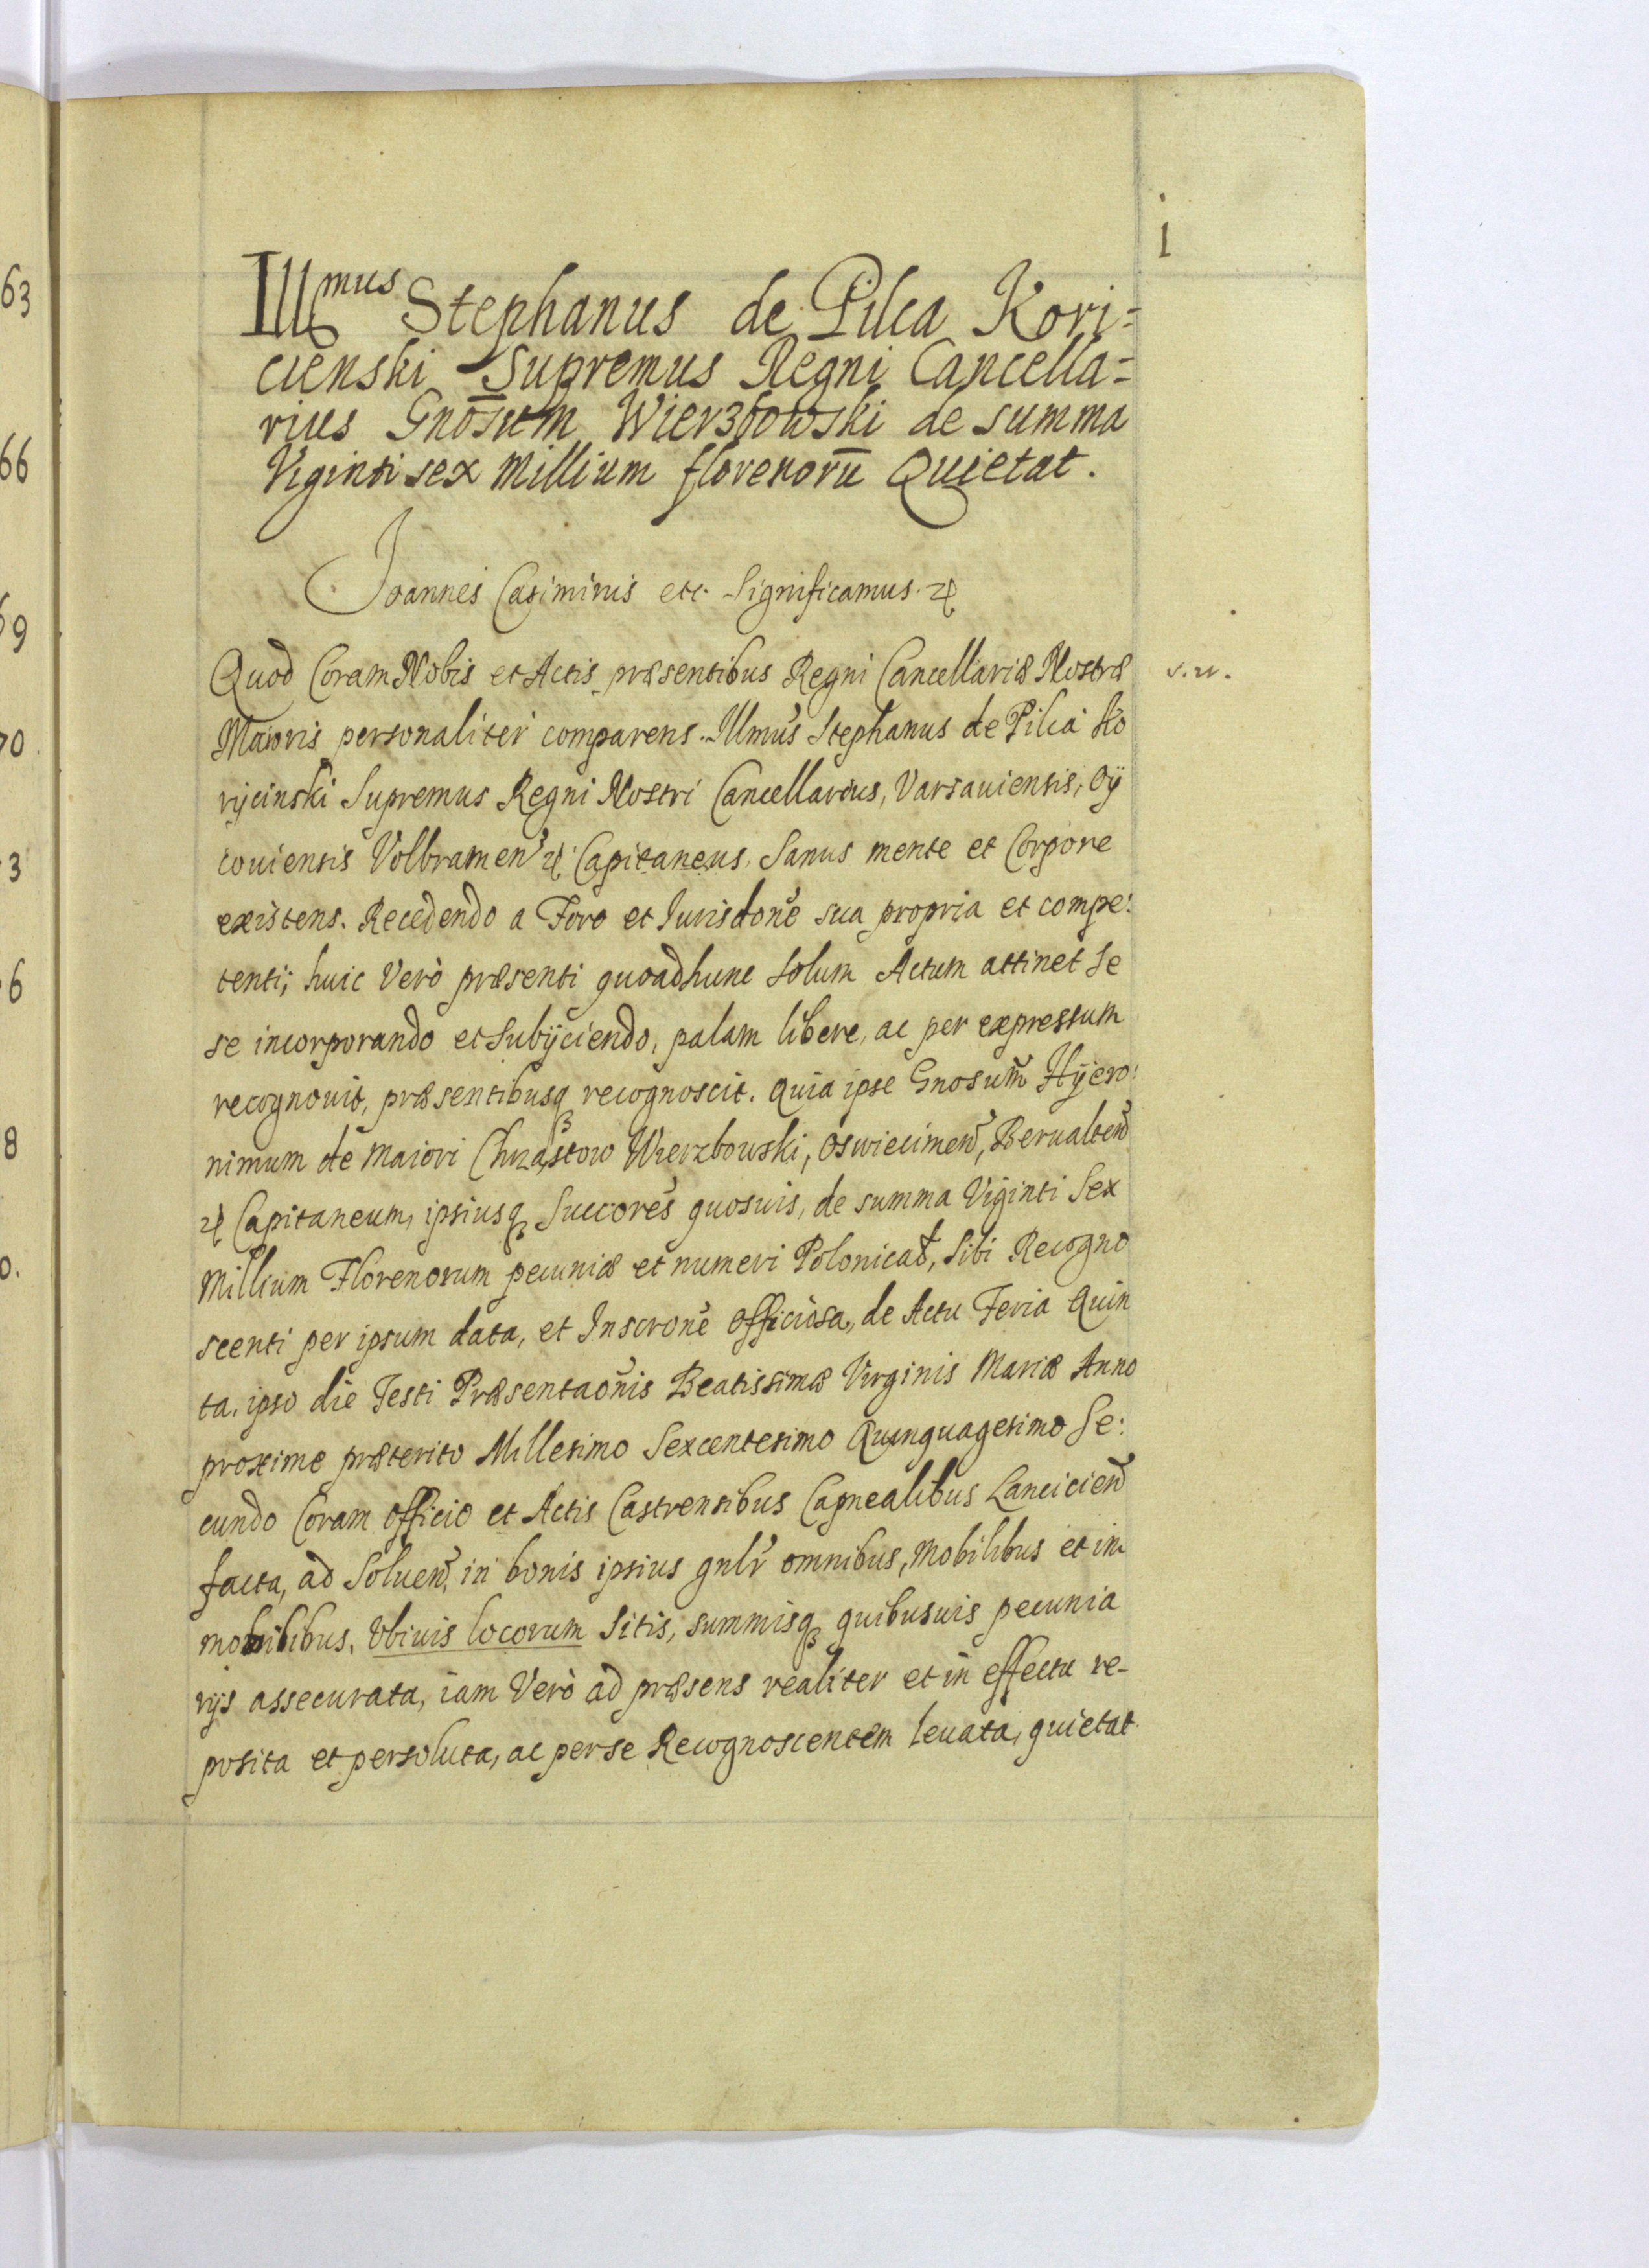 63
66
69
70
3
6
8
0.
1
Illmus Stephanus de Pilca Kori=
cienski Supremus Regni Cancella=
rius Gnōsum Wierzbowski de summa
Viginti sex Millium florenorū Quietat.
Joannes Casimirus etc. Significamus. ꝛc
Quod Coram Nobis et Actis præsentibus Regni Cancellariæ Nostræ
s. w.
Maioris personaliter comparens. Illmus Stephanus de Pilca Ko
rijcinski Supremus Regni Nostri Cancellarius, Varsauiensis, Oij
couiensis Volbramen̄ ꝛc Capitaneus, Sanus mente et Corpore
existens. Recedendo a Foro et Iurisdonē sua propria et compe:
tenti; huic Verò præsenti quoadhunc solum Actum attinet se
se incorporando et Subijciendo, palam libere, ac per expressum
recognouit, præsentibusq recognoscit. Quia ipse Gnosum̄ Hijero:
nimum de Maiori Chrząstow Wierzbowski, Oswiecimen̄, Berualten̄
ꝛc Capitaneum, ipsiusq Succorēs quosuis, de summa Viginti Sex
Millium Florenorum pecuniæ et numeri Polonicał, Sibi Recogno
scenti per ipsum data, et Inscronē Officiosa, de Actu Feria Quin
ta. ipso die Festi Præsentaōnis Beatissimæ Virginis Mariæ Anno
proxime præterito Millesimo Sexcentesimo Quinquagesimo Se:
cundo Coram Officio et Actis Castrensibus Capnealibus Lancicien̄
facta, ad Soluen̄, in bonis ipsius gnlr̄ omnibus, Mobilibus et im
mobilibus, Vbiuis locorum Sitis, summisq quibusuis pecunia
rijs assecurata, iam Verò ad præsens realiter et in effectu re-
posita et persoluta, ac per se Recognoscentem leuata, quietat